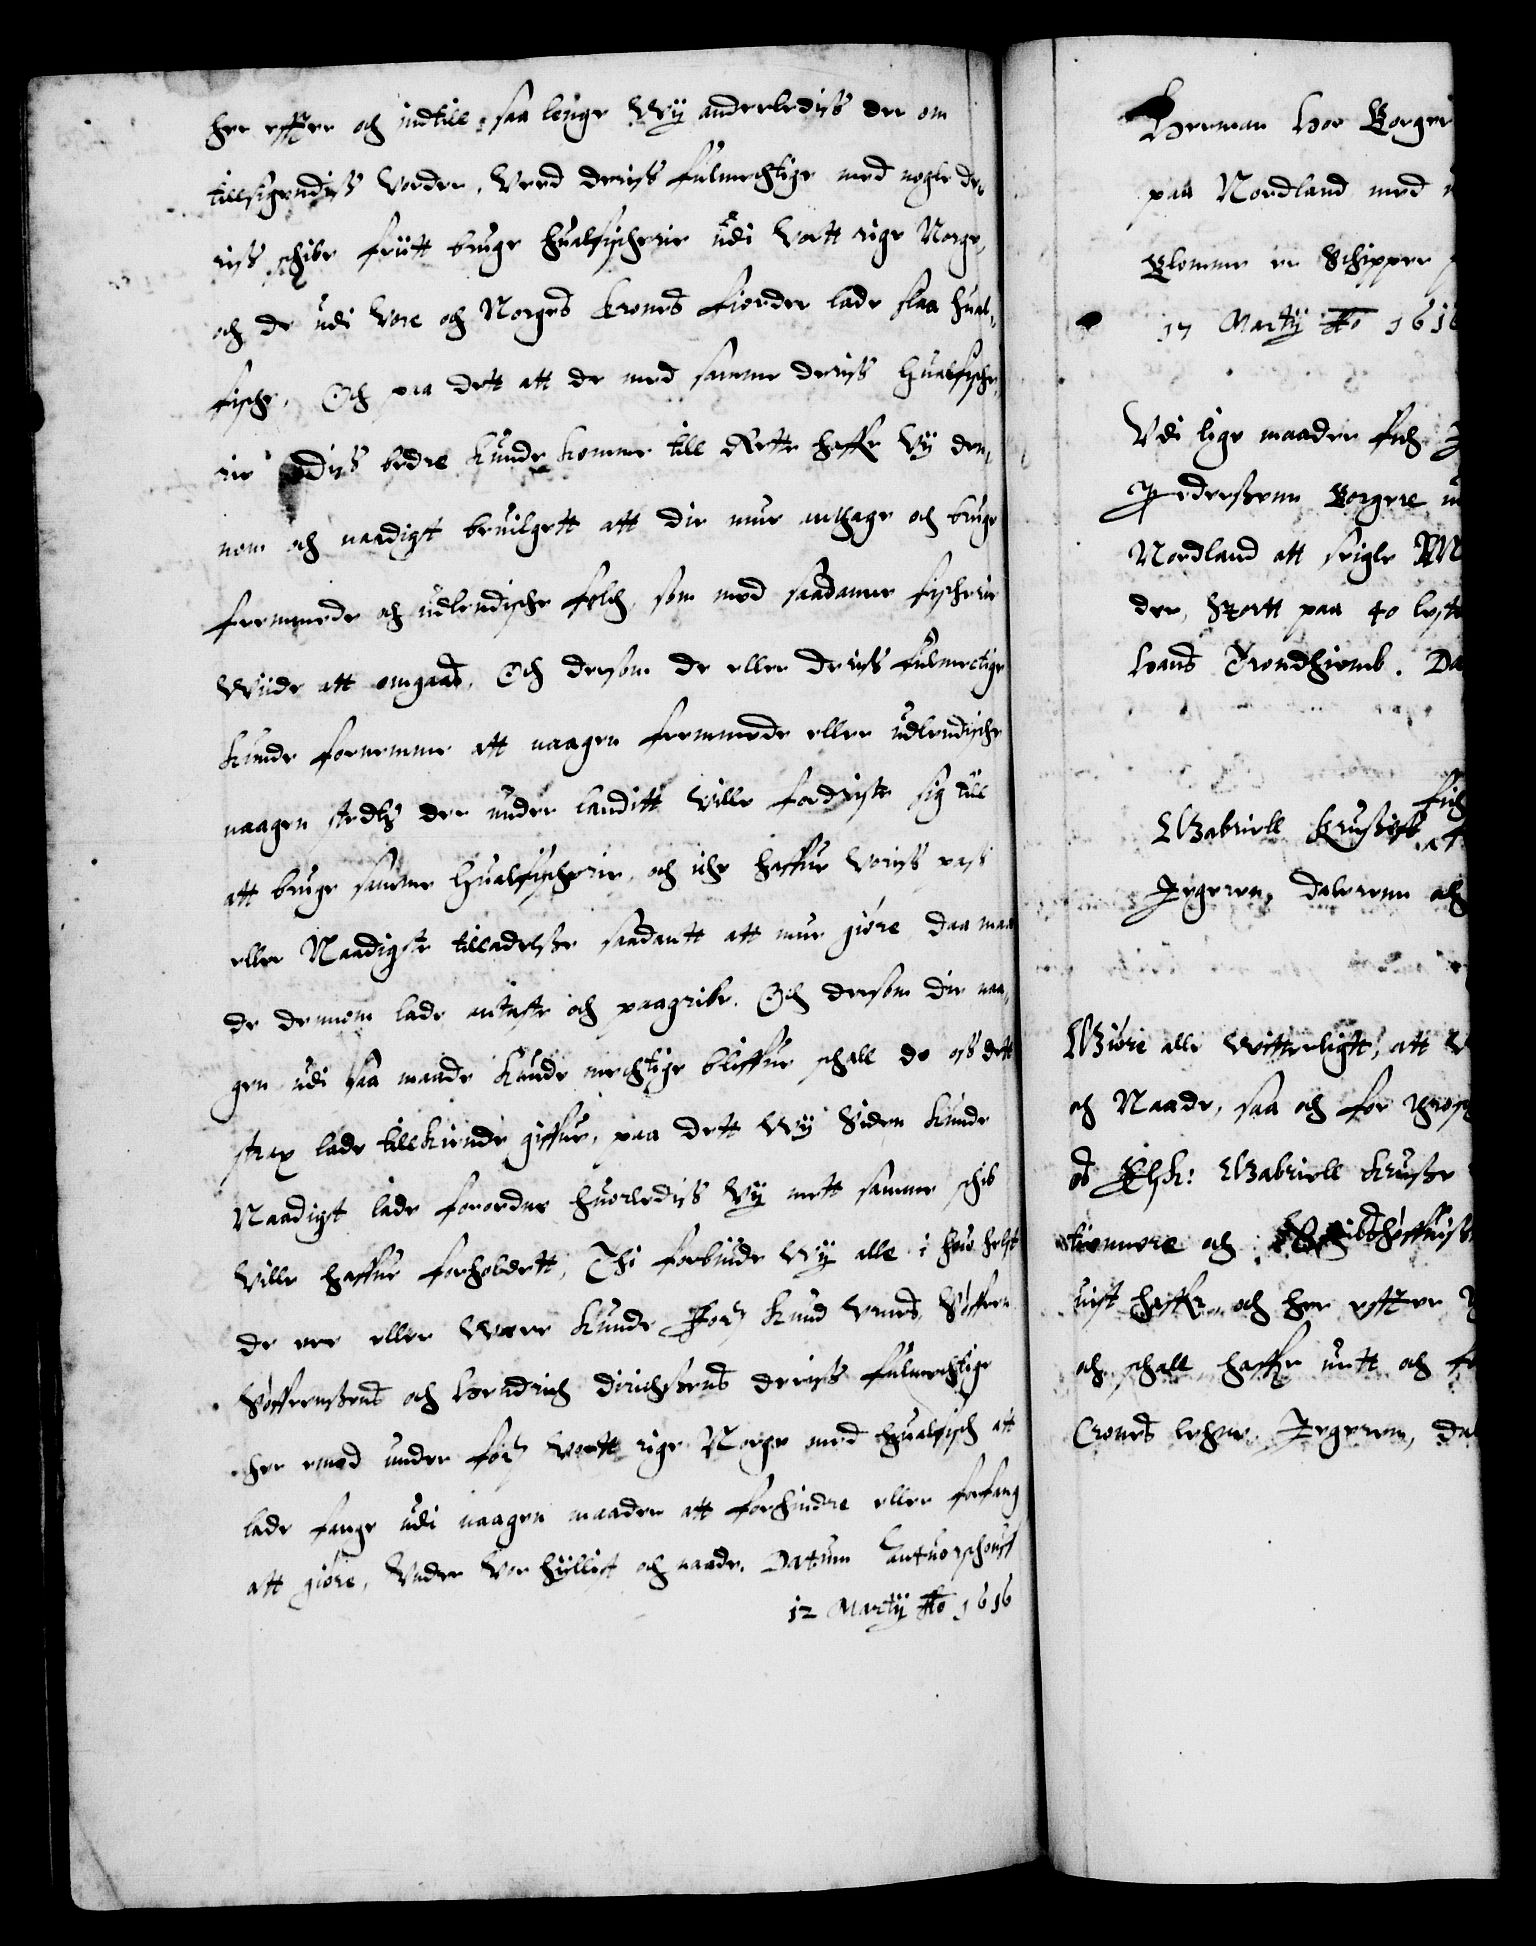 her effter och indtill saa lenge Wij anderlediss der om
tillsigendiss vorder, Ved deriss fulmechtige med nogle de-
riss schibe friitt bruge hualfischerie udi vortt rige Norge,
och de udi vore och Norges Krones fiorder lade slaa hual-
fische, Och paa dett att de med samme deriss hualfische-
rie diss bedre kunde komme till Rette haffe Wij den-
nom och naadigst beuilgett att die mue anthage och bruge
fremmede och udlendische folch, som med saadanne fischerie
wiide att omgaas, Och dersom de eller deriss fulmectige
kunde fornemme att naagen fremmede eller udlendische
naagen stedtz der under landitt ville fordriste sig till
att bruge samme hualfischerie, och iche haffue voriss pass
eller Naadigste tilladelsse saadantt att mue giøre daa maa
de dennom lade antaste och paagribe. Och dersom die naa-
gen udi saa maade kunde mechtige bliffue schall de oss dett
strax lade tillkiende giffue, paa dett Wij siden kunde
Naadigst lade forordne huorlediss Wij mett samme schib
ville haffue forholdett, Thi forbiude Wij alle i huo helst
de ere eller were kunde for: Knud Søffren
Søffrenssens och Hendrich Dirichsens deriss fulmechtige
her emod under for: vortt rige Norge med hualfisch att
lade fange udi naagen maader att forhindre eller forfang
att giøre, Under vor hyllist och naade. Datum Antuorschouff
12 Martij Ao 1616
Herman Hoe Borger
paa Nordland med
Blomme er Schipper
17 Martij Ao 1616
Udi lige maader fich
Pederssenn Borgere
Nordland att seigle
der, stortt paa 40 lester
Hans Trondhiemb. Da
Gabriell Krussis fich
Jegeren, Daleren och
Giøre alle witterligtt, att W
och Naade, saa och for
os Elsk: Gabriell Krusse
tienniere och
uist haffr, och her effter
och schall haffe untt och
Crones lehne, Jegeren, Da